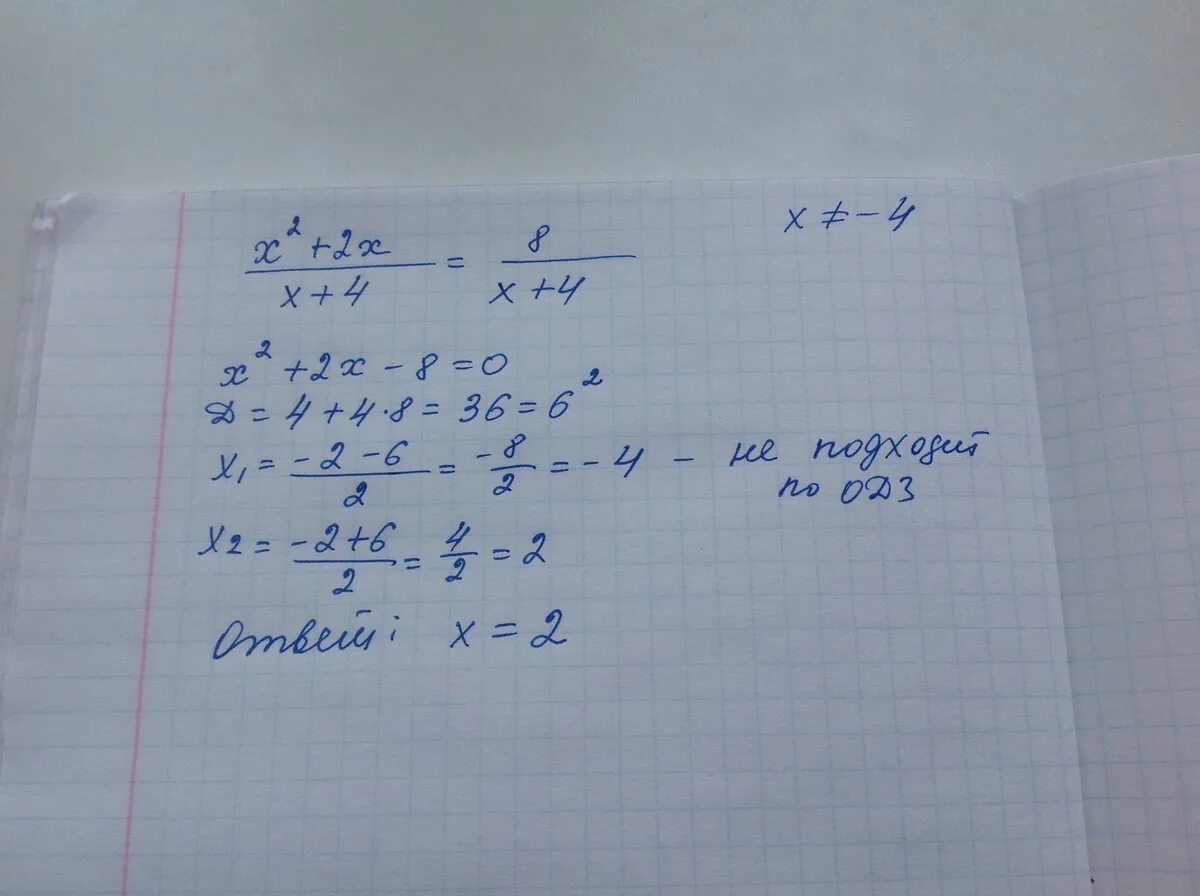 x² + 2x / x + 4 = 8 / x + 4    x ≠ - 4
x² + 2x - 8 = 0
D = 4 + 4·8 = 36 = 6²
x₁ = -2 - 6 / 2 = -8 / 2 = -4 - не подходит
по ОДЗ
x₂ = -2+6 / 2 = 4 / 2 = 2
Ответ: x = 2